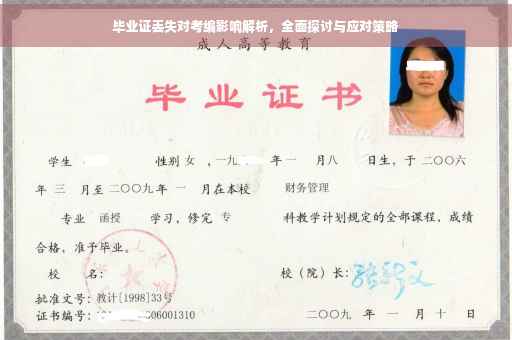 毕业证丢失对考编影响解析，全面探讨与应对策略
成人高等教育
毕业证书
学生 性别 女 ，一九 年一 月八 日生，于二〇〇六
年 三 月至二〇〇九年 一 月在本校 财务管理
专业 函授 学习，修完 专 科教学计划规定的全部课程，成绩
合格，准予毕业。
校 名： 校（院）长：
批准文号：教计[1998]33号
证书编号： 06001310 二〇〇九 年 一 月 十 日